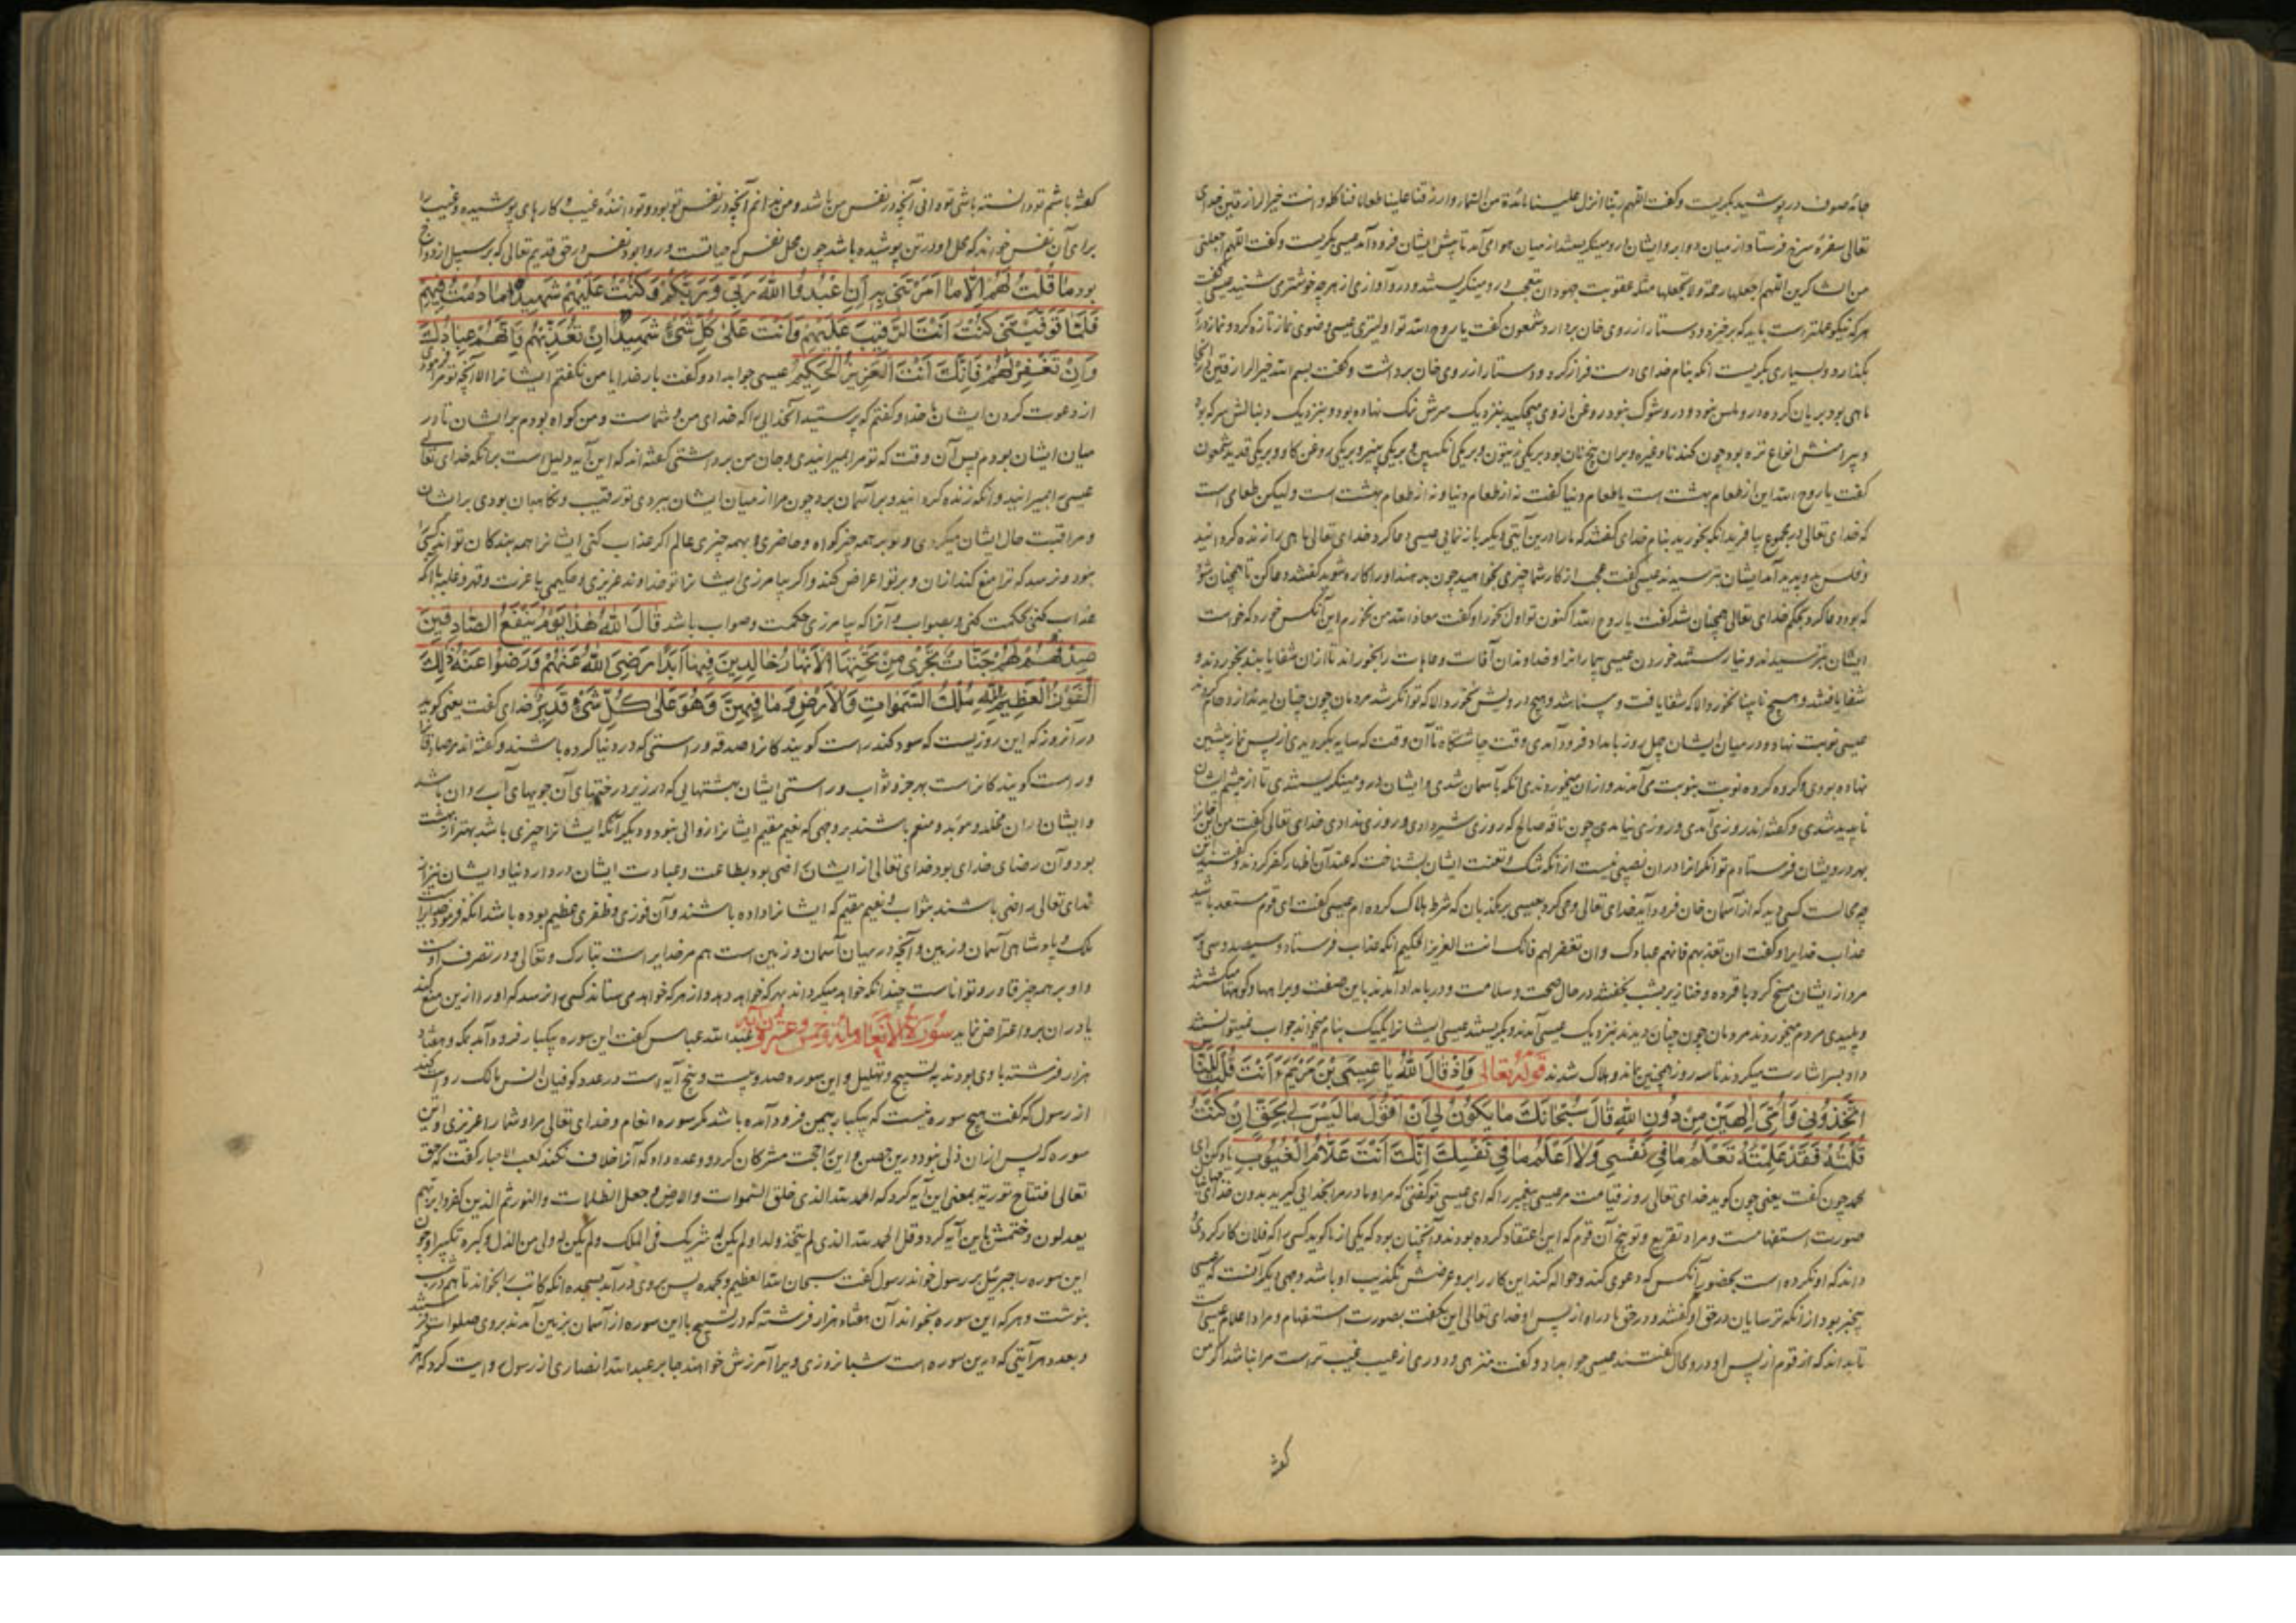 جامه صوف در پوشید بکریست وکفت اللهم ربنا انزل علینا مائدة من السماء وارزقنا علینا طعاما وانت خیر الرازقین خدای
تعالی سفرهٔ سرخ فرستاد از میان دو ابر و ایشان درو مینکریستند از میان هوا می آمد تا پیش ایشان فرود آمد عیسی بکریست وکفت اللهم اجعلنی
من الشاکرین اللهم اجعلها رحمة ولا تجعلها مثلة عقوبت جهودان بتعجب درو مینکریستند و آوازی از هرچه خوشتر می شنیدند عیسی کفت
هرکه نیکو عملترست باید که برخیزد و دستار از روی خان بردارد شمعون کفت یا روح الله تو اولیتری عیسی وضوی نماز تازه کرد و نماز
بکذارد و بسیاری بکریست آنکه بنام خدای دست فراز کرد و دستار از روی خان برداشت وکفت بسم الله خیر الرازقین
ماهی بود بریان کرده درو فلس نبود و درو شوک نبود روغن ازوی میچکید بنزدیک سرش نمک نهاده بود و بنزدیک دنبالش سرکه بود
و پیرامنش انواع تره بود چون کندنا وغیره و بران پنج نان بود بر یکی زیتون و بر یکی انکبین و بر یکی پنیر و بر یکی روغن کاو و بر یکی قدید شمعون
کفت یا روح الله این از طعام بهشت است یا طعام دنیا کفت نه از طعام دنیا و نه از طعام بهشت است ولیکن طعامی است
که خدای تعالی بیافرید آنکه بخورید بنام خدای کفتند که ما را درین آیتی دیکر بازنمای عیسی دعا کرد خدای تعالی ماهی را زنده کردانید
و فلس بروپدید آمد ایشان بترسیدند عیسی کفت عجب از کار شما چیزی بخواهید چون بدهند او را کاره شوید کفتند دعا کن تا همچنان شود
که بود دعا کرد بحکم خدای تعالی همچنان شد کفت یا روح الله اکنون تو اول بخور او کفت معاذ الله من نخورم این آنکس خورد که خواست
ایشان بترسیدند و نیارستند خوردن عیسی بیمارانرا و خداوندان آفات و عاهات را بخواند تا ازان شفا یابند بخوردند و
شفا یافتند و هیچ نابینا نخورد الا که شفا یافت و بینا شد و هیچ درویش نخورد الا که توانکر شد مردمان چون چنان دیدند ازدحام
عیسی نوبت نهاد و درمیان ایشان چهل روز بامداد فرود آمدی وقت چاشتکاه تا آن وقت که سایه بکردیدی از پس نماز پیشین
نهاده بودی و کروه کروه نوبت بنوبت می آمدند و ازان میخوردندی آنکه بآسمان شدی و ایشان درو مینکریستندی تا از چشم ایشان
ناپدید شدی و کفته اند روزی آمدی و روزی نیامدی چون ناقه صالح که روزی شیر دادی و روزی ندادی خدای تعالی کفت من این خانرا
بهر درویشان فرستادم توانکرانرا دران نصیبی نیست ازآنکه شک و تعنت ایشان بشناخت که عند آن اظهار کفر کردند
چه محالست کسی دید که از آسمان خان فرود آید خدای تعالی وحی کرد بعیسی بر مکذبان که شرط هلاک کرده ام عیسی کفت ای قوم مستعد باشید
عذاب خدایرا و کفت ان تعذبهم فانهم عبادک وان تغفر لهم فانک انت العزیز الحکیم آنکه عذاب فرستاد و سیصد و سی و
مرد از ایشان مسخ کرد با قرده و خنازیر بشب بخفتند درحال صحت و سلامت و در بامداد آمدند باین صفت و براهها و کویها میکشتند
و پلیدی مردم میخوردند مردمان چون چنان دیدند نزدیک عیسی آمدند و بکریستند عیسی ایشانرا یکیک بنام میخواند جواب نمیتوانستند
داد بسر اشارت میکردند تا سه روز همچنین بماند و هلاک شدند قوله تعالی وَاِذْ قَالَ اللّٰهُ یَا عِیسَی بْنَ مَرْیَمَ ءَاَنْتَ قُلْتَ لِلنَّاسِ
اتَّخِذُونِی وَاُمِّیَ اِلٰهَیْنِ مِنْ دُونِ اللّٰهِ قَالَ سُبْحَانَکَ مَا یَکُونُ لِی اَنْ اَقُولَ مَا لَیْسَ لِی بِحَقٍّ اِنْ کُنْتُ
قُلْتُهُ فَقَدْ عَلِمْتَهُ تَعْلَمُ مَا فِی نَفْسِی وَلَا اَعْلَمُ مَا فِی نَفْسِکَ اِنَّکَ اَنْتَ عَلَّامُ الْغُیُوبِ یاد کن ای
محمد چون کفت یعنی چون کوید خدای تعالی روز قیامت مر عیسی پیغمبر را که ای عیسی تو کفتی که مرا و مادر مرا بخدایی کیرید بدون خدای
صورت استفهامست و مراد تقریع و توبیخ آن قوم که این اعتقاد کرده بودند و آنچنان بود که یکی از ما کوید کسی را که فلان کار کردی
داند که او نکرده است بحضور آنکس که دعوی کند و حواله کند این کار را برو غرضش تکذیب او باشد وجهی دیکر آنست که عیسی
بیخبر بود ازآنکه ترسایان در حق او کفتند و در حق مادر او از پس او خدای تعالی این بکفت بصورت استفهام و مراد اعلام عیسی
تا بداند که از قوم از پس او در وی محال کفتند عیسی جواب داد و کفت منزهی و دوری از عیب عیب تراست مرا نباشد اکر من
کفته
کفته باشم تو دانسته باشی تو دانی آنچه در نفس من باشد و من ندانم آنچه در نفس تو بود و تو داننده غیب و کارهای پوشیده و غیب را
برای آن نفس خوانند که محل او در تن پوشیده باشد چون محل نفس که حیاتست و روا بود نفس در حق قدیم تعالی که بر سبیل ازدواج
بود مَا قُلْتُ لَهُمْ اِلَّا مَا اَمَرْتَنِی بِهِ اَنِ اعْبُدُوا اللّٰهَ رَبِّی وَرَبَّکُمْ وَکُنْتُ عَلَیْهِمْ شَهِیدًا مَا دُمْتُ فِیهِمْ
فَلَمَّا تَوَفَّیْتَنِی کُنْتَ اَنْتَ الرَّقِیبَ عَلَیْهِمْ وَاَنْتَ عَلٰی کُلِّ شَیْءٍ شَهِیدٌ اِنْ تُعَذِّبْهُمْ فَاِنَّهُمْ عِبَادُکَ
وَاِنْ تَغْفِرْ لَهُمْ فَاِنَّکَ اَنْتَ الْعَزِیزُ الْحَکِیمُ عیسی جواب داد و کفت بار خدایا من نکفتم ایشانرا الا آنچه تو مرا فرمودی
از دعوت کردن ایشان با خدا و کفتم که پرستید آنخدایی را که خدای من و شماست و من کواه بودم بر ایشان تا در
میان ایشان بودم پس آن وقت که تو مرا بمیرانیدی و جان من برداشتی کفته اند که این آیه دلیل است برآنکه خدای تعالی
عیسی را بمیرانید و آنکه زنده کردانید و بر آسمان برد چون مرا از میان ایشان ببردی تو رقیب و نکاهبان بودی بر ایشان
و مراقبت حال ایشان میکردی و تو بر همه چیز کواه و حاضری و بهمه چیزی عالم اکر عذاب کنی ایشانرا همه بندکان تواند کسی را
نبود و نرسد که ترا منع کند ازان و بر تو اعتراض کند و اکر بیامرزی ایشانرا تو خداوند عزیزی و حکیمی با عزت و قهر و غلبه باآنکه
عذاب کنی بحکمت کنی و بصواب و آنرا که بیامرزی حکمت و صواب باشد قَالَ اللّٰهُ هٰذَا یَوْمُ یَنْفَعُ الصَّادِقِینَ
صِدْقُهُمْ لَهُمْ جَنَّاتٌ تَجْرِی مِنْ تَحْتِهَا الْاَنْهَارُ خَالِدِینَ فِیهَا اَبَدًا رَضِیَ اللّٰهُ عَنْهُمْ وَرَضُوا عَنْهُ ذٰلِکَ
الْفَوْزُ الْعَظِیمُ لِلّٰهِ مُلْکُ السَّمٰوَاتِ وَالْاَرْضِ وَمَا فِیهِنَّ وَهُوَ عَلٰی کُلِّ شَیْءٍ قَدِیرٌ خدای کفت یعنی کوید
در آنروز که این روزیست که سود کند راست کویندکانرا صدق و راستی که در دنیا کرده باشند و کفته اند مر صادقانرا
و راست کویندکانراست بهر جزا و ثواب و راستی ایشان بهشتهایی که در زیر درختهای آن جویهای آب روان باشد
و ایشان دران مخلد و مؤبد و منعم باشند بر وجهی که نعیم مقیم ایشانرا زوالی نبود و دیکر آنکه ایشانرا چیزی باشد بهتر از بهشت
بود و آن رضای خدای بود خدای تعالی از ایشان راضی بود بطاعت و عبادت ایشان در دار دنیا و ایشان نیز از
خدای تعالی راضی باشند بثواب و نعیم مقیم که ایشانرا داده باشند و آن فوزی و ظفری عظیم بوده باشد آنکه فرمود خدایراست
ملک و پادشاهی آسمان و زمین و آنچه در میان آسمان و زمین است هم مر خدایراست تبارک و تعالی و در تصرف اوست
و او بر همه چیز قادر و تواناست چندانکه خواهد میکرداند بهرکه خواهد دهد و از هرکه خواهد می ستاند کسی را نرسد که او را ازین منع کند
یا دران برو اعتراض نماید سورة الانعام وهی مائة وخمس وعشرون آیة عبد الله عباس کفت این سوره یکبار فرود آمد بمکه و هفتاد
هزار فرشته با وی بودند به تسبیح و تهلیل و این سوره صد و شصت و پنج آیه است در عدد کوفیان انس مالک روایت کند
از رسول که کفت هیچ سوره نیست که یکبار بمن فرود آمده باشد مکر سوره انعام و خدای تعالی مرا و شما را عزیزی و این
سوره که پس ازان ذلی نبود و درین حصن و این حجت مشرکان کرد و وعده داد که آنرا خلاف نکند کعب الاحبار کفت که حق
تعالی افتتاح توریة بمعنی این آیه کرد که الحمد لله الذی خلق السموات والارض وجعل الظلمات والنور ثم الذین کفروا بربهم
یعدلون و ختمش باین آیه کرد و قل الحمد لله الذی لم یتخذ ولدا ولم یکن له شریک فی الملک ولم یکن له ولی من الذل وکبره تکبیرا و چون
این سوره را جبرئیل بر رسول خواند رسول کفت سبحان الله العظیم و بحمده پس بروی درآمد بسجده آنکه کاتب را بخواند تا هم در شب
بنوشت و هرکه این سوره بخواند آن هفتاد هزار فرشته که در تسبیح با این سوره از آسمان بزمین آمدند بروی صلوات فرستند
و بعدد هر آیتی که درین سوره است شبانروزی ویرا آمرزش خواهند جابر عبد الله انصاری از رسول روایت کرد که هر